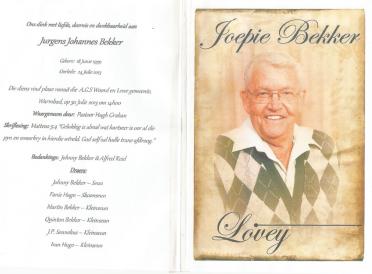 Ons dink met liefde, deernis en dankbaarheid aan
Jurgens Johannes Bekker
Gebore: 18 Junie 1939
Oorlede: 24 Julie 2013
Die diens vind plaas vanuit die A.G.S Woord en Lewe gemeente,
Warmbad, op 30 Julie 2013 om 14h00
Waargeneem deur: Pastoor Hugh Graham
Skriflesing: Matteus 5:4 "Gelukkig is almal wat hartseer is oor al die
pyn en onreg in hierdie wêreld. God self sal hulle troos-afdroog."
Bedankings: Johnny Bekker & Alfred Reid
Draers:
Johnny Bekker – Seun
Fanie Hugo – Skoonseun
Martin Bekker – Kleinseun
Quinton Bekker – Kleinseun
J.P. – Kleinseun
Ivan Hugo – Kleinseun
Joepie Bekker
Lovey